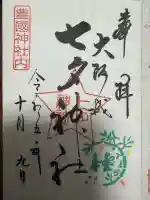 奉拝
大阪城
七夕神社
豊國神社内
令和五年
十月九日